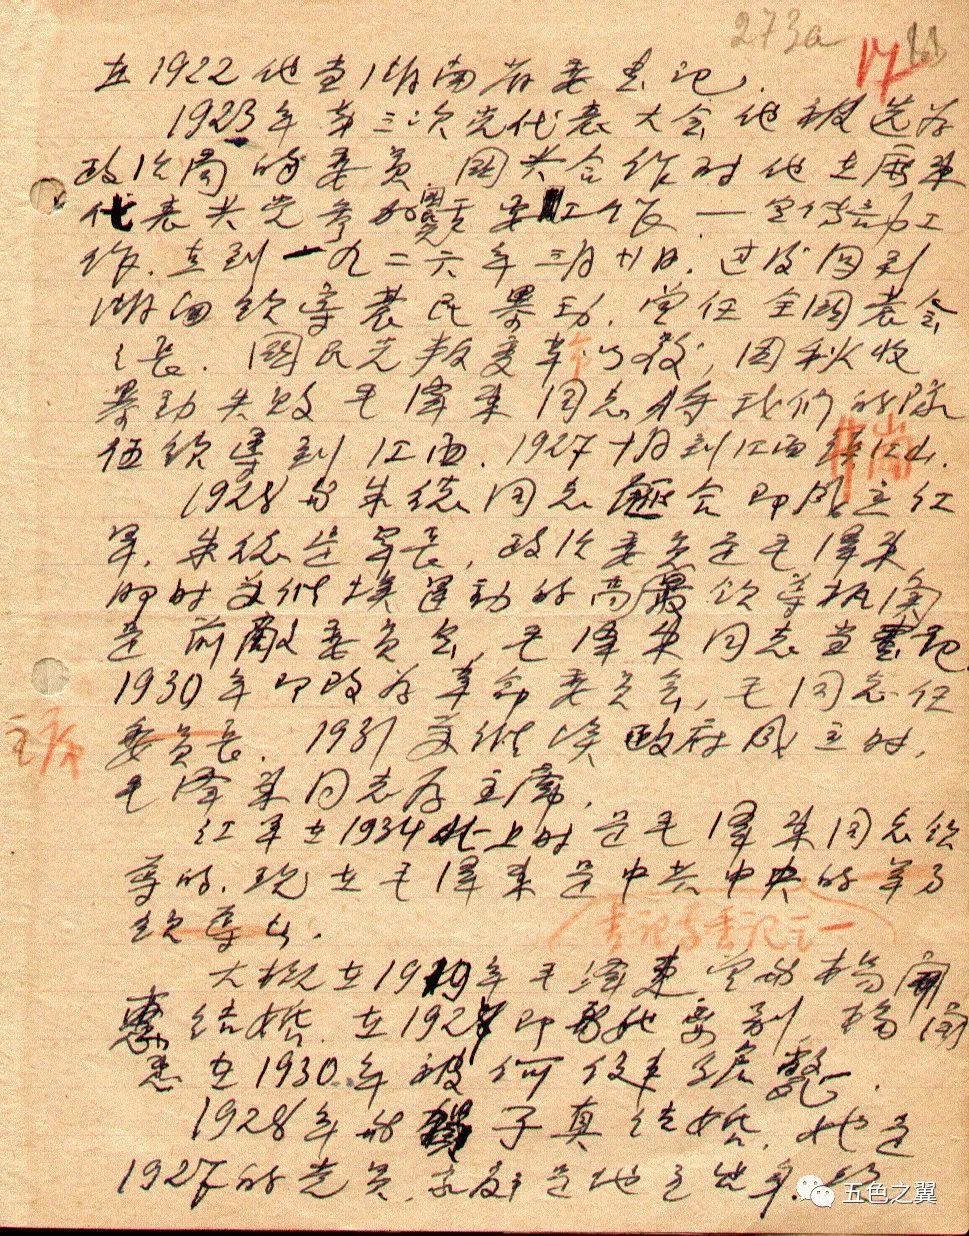 273a
17
在1922他当湖南省委书记,
1923年第三次党代表大会他被选为
政治局的委员 国共合作时他在
代表共党参加国民党 工作.
作.直到一九二六年三月廿日.过后回到
湖南领导农民暴动.曾任全国农会
之长.国民党叛变革命以后,因秋收
暴动失败毛泽东同志将我们的队
伍领导到江西.1927十月到江西井岗山.
1928与朱德同志 会即成立红
军,朱德是军长,政治委员是毛泽东
那时苏维埃运动的高最领导机关
是前敌委员会,毛泽东同志当书记.
1930年即改为革命委员会,毛同志任
主席
委员长.1931苏维埃政府成立时,
毛泽东同志为主席,
红军在1934北上时是毛泽东同志领
导的.现在毛泽东是中共中央的
领导者.
书记与书记之一
大概在1919年毛泽东曾与杨开
惠结婚.在192 即 别 杨开
惠在1930年被何 毙.
1928年与 子真结婚,她是
1927的党员,家庭是地主出身.
五色之翼